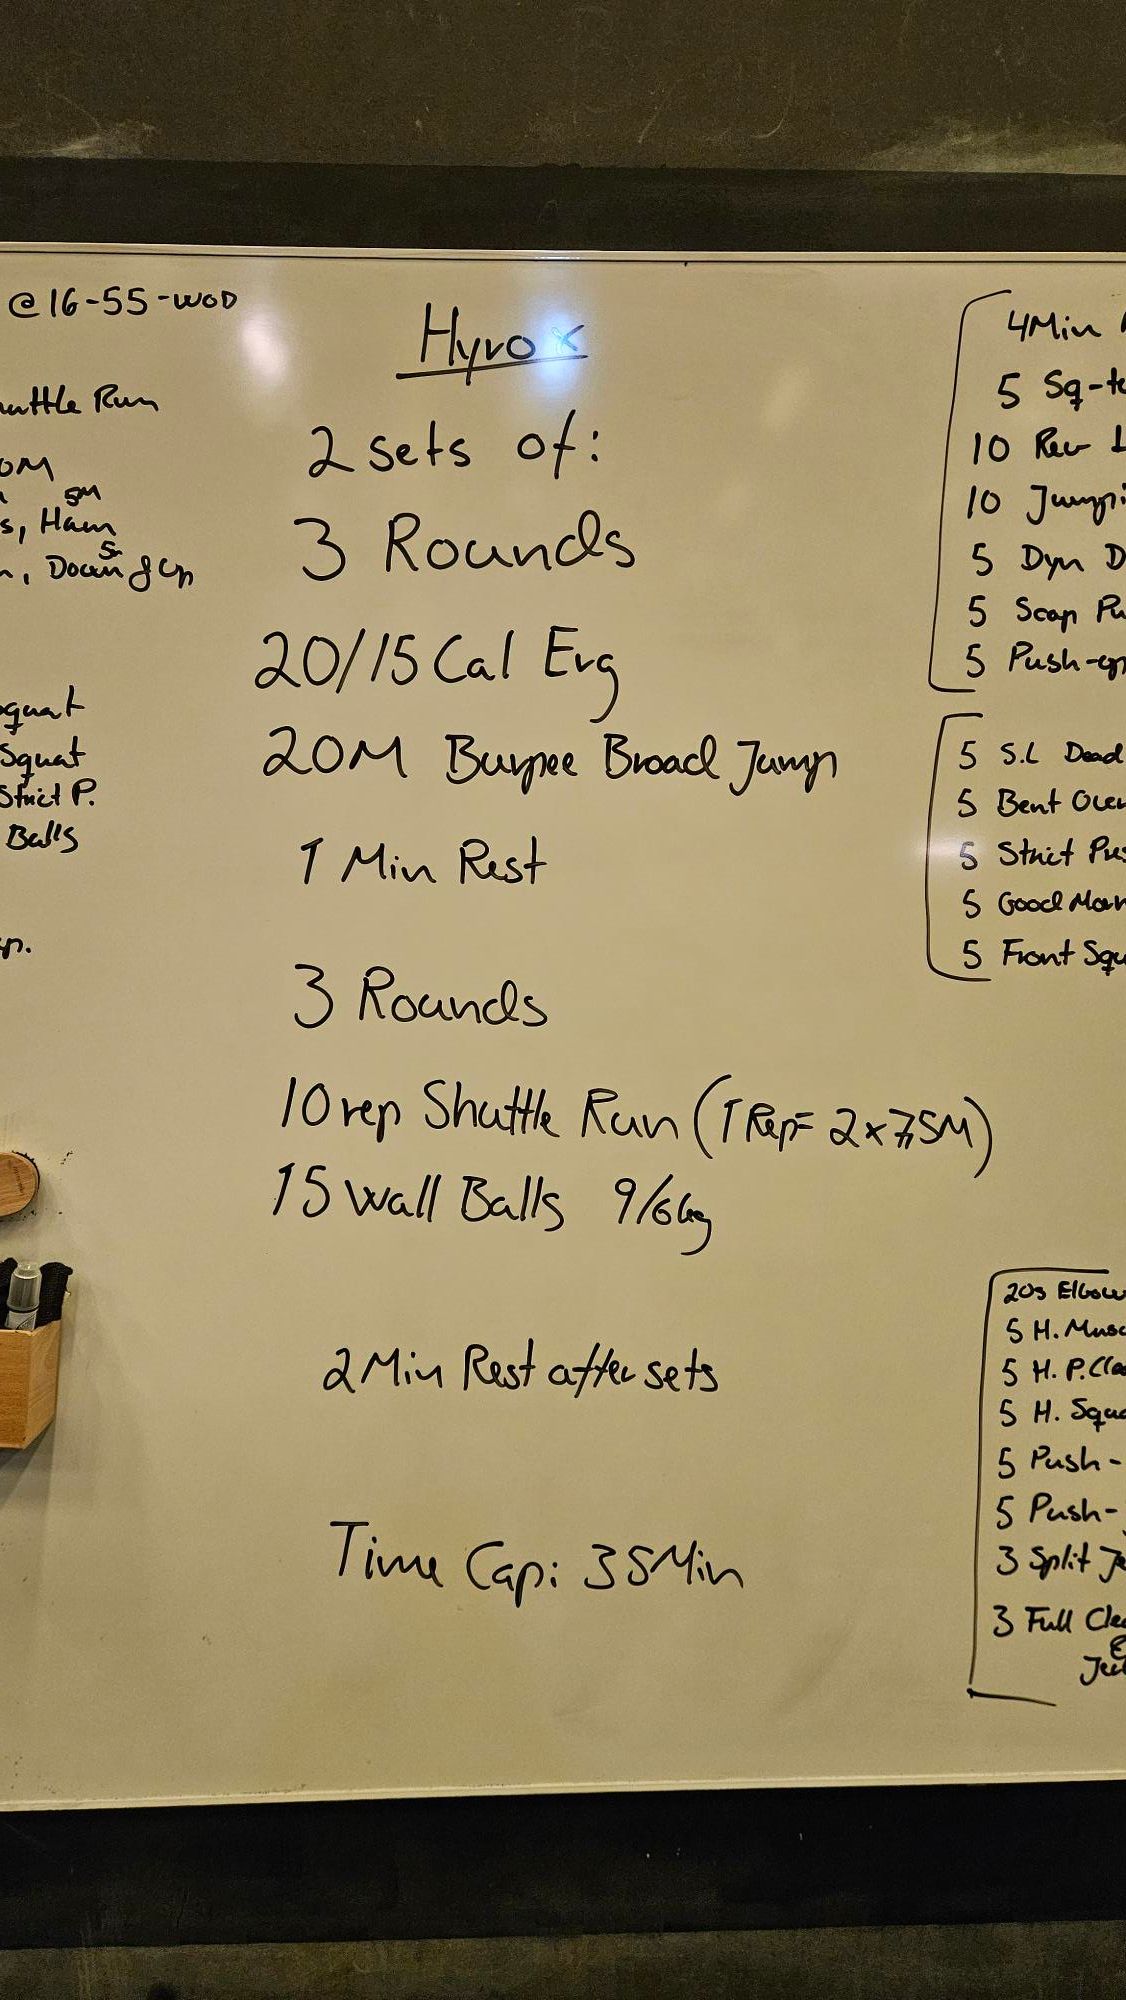 @16-55-WOD
Run
5M
Ham
5m
Down & Up
Squat
Squat
Strict P.
Balls
Hyrox
2 sets of:
3 Rounds
20/15 Cal Erg
20M Burpee Broad Jump
1 Min Rest
3 Rounds
10 rep Shuttle Run (1 Rep= 2x7,5M)
15 Wall Balls 9/6kg
2 Min Rest after sets
Time Cap: 35Min
4Min
5 Sq-
10 Rev
10 Jumpi
5 Dyn D
5 Scap Pu
5 Push-up
5 S.L Dead
5 Bent Over
5 Strict Pres
5 Good Mor
5 Front Squ
20s Elbow
5 H. Musc
5 H. P.Clea
5 H. Squa
5 Push-
5 Push-
3 Split Je
3 Full Clea